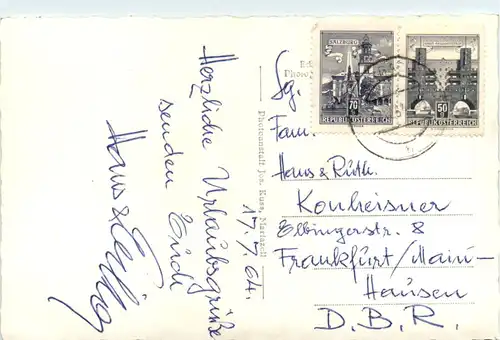 Herzliche Urlaubsgrüße
senden Euch
Hans &
17.7.64.
Photoanstalt Jos. Kuss, Mariazell
SALZBURG
70
REPUBLIK ÖSTERREICH
50
REPUBLIK ÖSTERREICH
Fam.
Hans & Ruth
Konheisner
Elbingerstr. 8
Frankfurt/Main-
Hausen
D.B.R.